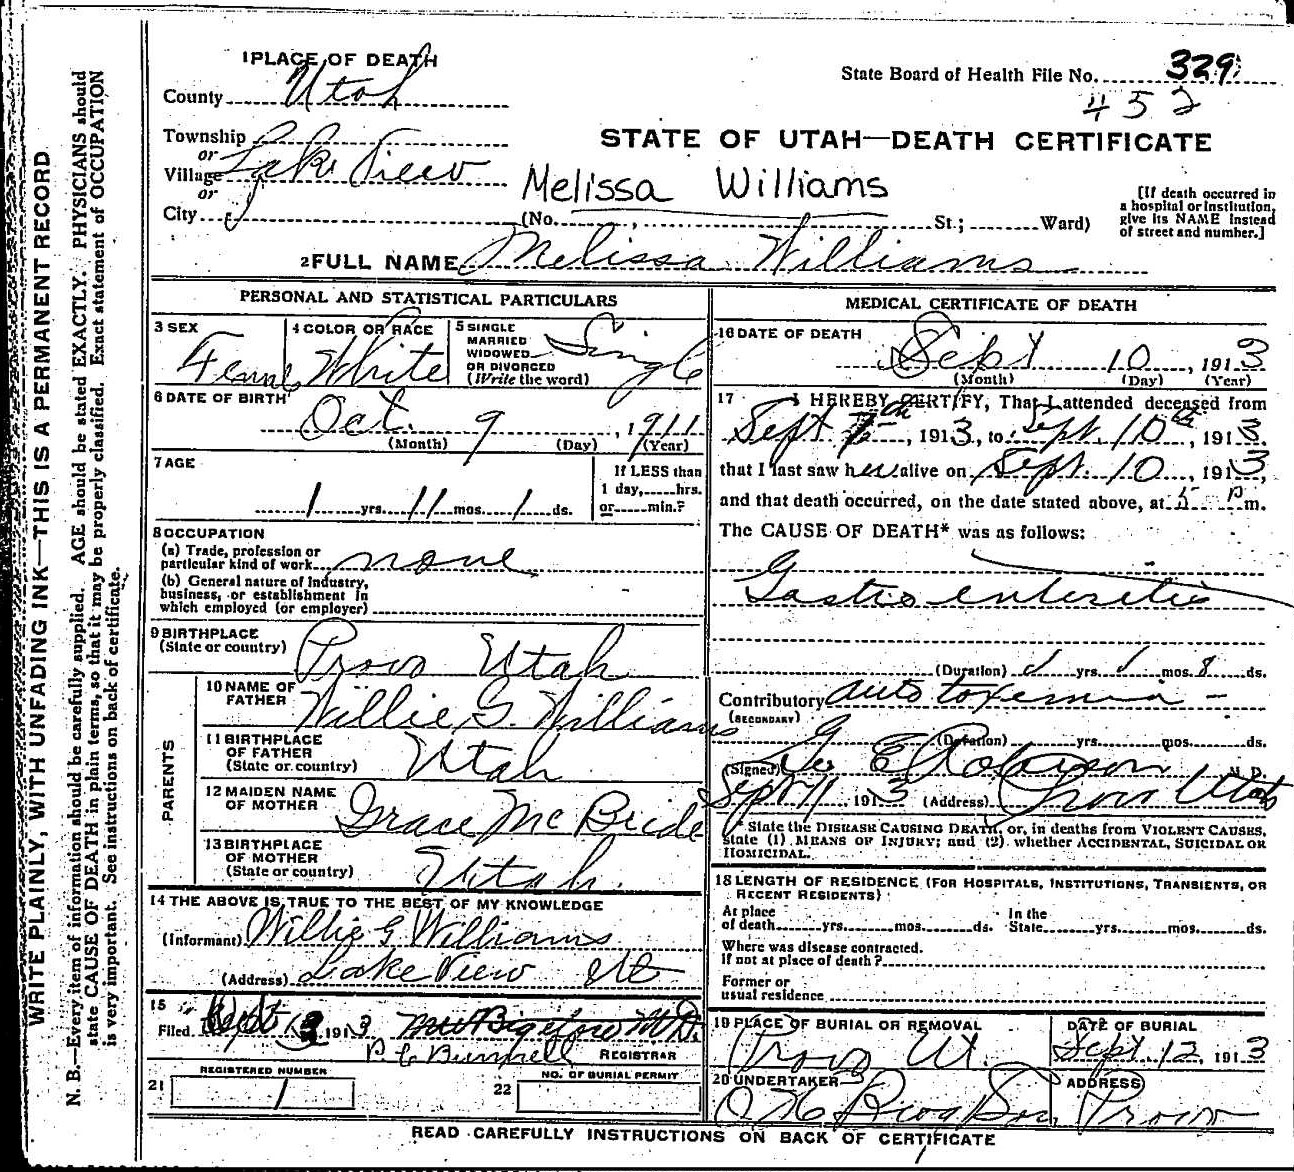 WRITE PLAINLY, WITH UNFADING INK—THIS IS A PERMANENT RECORD
N. B.—Every item of information should be carefully supplied. AGE should be stated EXACTLY. PHYSICIANS should
state CAUSE OF DEATH in plain terms, so that it may be properly classified. Exact statement of OCCUPATION
is very important. See instructions on back of certificate.
1 PLACE OF DEATH
County Utah
State Board of Health File No. 329
452
Township
or
Village Lake View
or
City
STATE OF UTAH—DEATH CERTIFICATE
Melissa Williams
(No. , St.; Ward)
[If death occurred in
a hospital or institution,
give its NAME instead
of street and number.]
2 FULL NAME Melissa Williams
PERSONAL AND STATISTICAL PARTICULARS
3 SEX
4 COLOR OR RACE White
5 SINGLE
MARRIED
WIDOWED
OR DIVORCED
(Write the word)
Single
6 DATE OF BIRTH
Oct. 9, 1911
(Month) (Day) (Year)
7 AGE
1 yrs. 11 mos. 1 ds.
If LESS than
1 day, hrs.
or min.?
8 OCCUPATION
(a) Trade, profession or
particular kind of work none
(b) General nature of industry,
business, or establishment in
which employed (or employer)
9 BIRTHPLACE
(State or country) Provo Utah
PARENTS
10 NAME OF
FATHER Willie G. Williams
11 BIRTHPLACE
OF FATHER
(State or country) Utah
12 MAIDEN NAME
OF MOTHER Grace McBride
13 BIRTHPLACE
OF MOTHER
(State or country) Utah.
14 THE ABOVE IS TRUE TO THE BEST OF MY KNOWLEDGE
(Informant) Willie G Williams
(Address) Lake View
15
Filed Sept 1913
REGISTRAR
21 REGISTERED NUMBER
1
22 NO. OF BURIAL PERMIT
MEDICAL CERTIFICATE OF DEATH
16 DATE OF DEATH
Sept 10, 1913
(Month) (Day) (Year)
17 I HEREBY CERTIFY, That I attended deceased from
Sept 7th, 1913, to Sept. 10th, 1913.
that I last saw her alive on Sept. 10, 1913,
and that death occurred, on the date stated above, at 5 P m.
The CAUSE OF DEATH* was as follows:
Gastro enteritis
(Duration) yrs. mos. 8 ds.
Contributory auto toxemia -
(SECONDARY)
(Duration) yrs. mos. ds.
(Signed) Geo E Robison M. D.
Sept 11, 1913 (Address) Provo Utah
* State the DISEASE CAUSING DEATH, or, in deaths from VIOLENT CAUSES,
state (1) MEANS OF INJURY; and (2) whether ACCIDENTAL, SUICIDAL OR
HOMICIDAL.
18 LENGTH OF RESIDENCE (FOR HOSPITALS, INSTITUTIONS, TRANSIENTS, OR
RECENT RESIDENTS)
At place In the
of death yrs. mos. ds. State yrs. mos. ds.
Where was disease contracted.
If not at place of death?
Former or
usual residence
19 PLACE OF BURIAL OR REMOVAL
Provo Ut.
DATE OF BURIAL
Sept. 12, 1913
20 UNDERTAKER
ADDRESS
Provo
READ CAREFULLY INSTRUCTIONS ON BACK OF CERTIFICATE